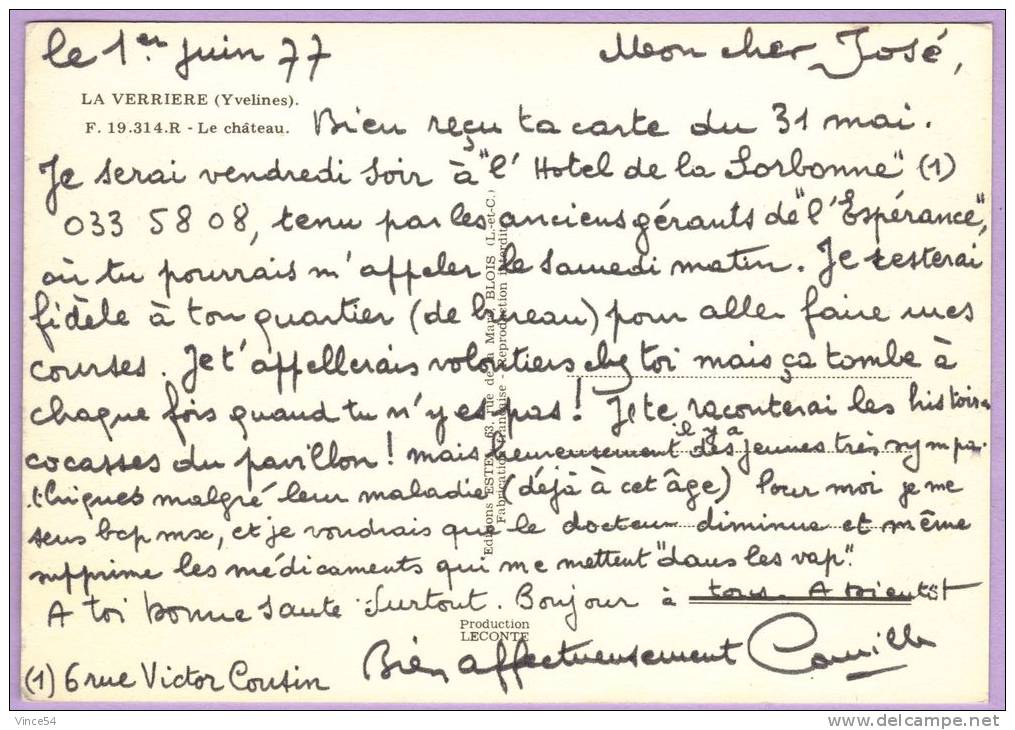 le 1er juin 77
Mon cher José,
LA VERRIERE (Yvelines).
F. 19.314.R - Le château.
Bien reçu ta carte du 31 mai.
Je serai vendredi soir à "l'Hotel de la Sorbonne" (1)
033 58 08, tenu par les anciens gérants de "l'Espérance",
où tu pourrais m'appeler le samedi matin. Je resterai
fidèle à ton quartier (de bureau) pour aller faire mes
courses. Je t'appellerais volontiers chez toi mais ça tombe à
chaque fois quand tu n'y es pas! Je te raconterai les histoires
cocasses du pavillon! mais heureusement il y a des jeunes très sympa-
thiques malgré leur maladie (déjà à cet âge) Pour moi je me
sens bcp mx, et je voudrais que le docteur diminue et même
supprime les médicaments qui me mettent "dans les vap".
A toi bonne santé surtout. Bonjour à tous. A bientôt
Bien affectueusement Camille
(1) 6 rue Victor Cousin
Editions ESTEL - 63, rue de la Mare BLOIS (L.-et-C.)
Fabrication Française - Reproduction interdite
Production
LECONTE
Vince54
http://www.delcampe.net